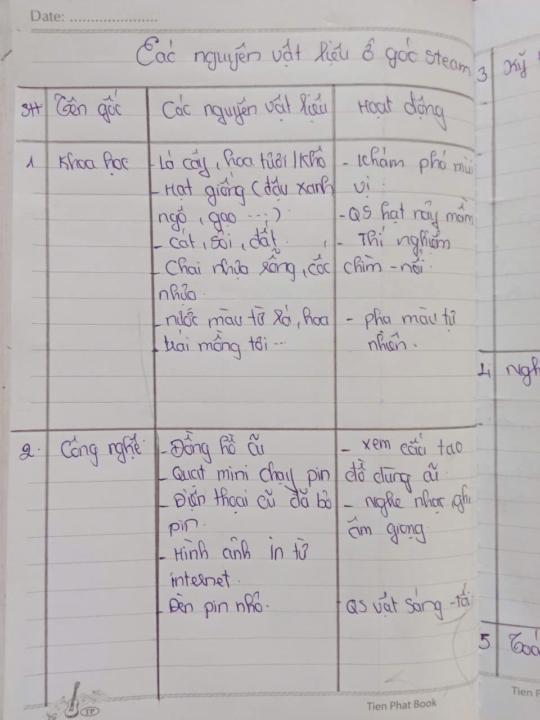 Date: .....................
Các nguyên vật liệu ở góc Steam
Stt Tên góc Các nguyên vật liệu Hoạt động
1 Khoa học - Lá cây, hoa tươi / khô - Khám phá mùi
- Hạt giống (đậu xanh vị
ngô, gạo ...;) - QS hạt nảy mầm
- Cát, sỏi, đất - Thí nghiệm
Chai nhựa rỗng, cốc chìm - nổi
nhựa
- nước màu từ lá, hoa - pha màu tự
trái mồng tơi ... nhiên.
2. Công nghệ - Đồng hồ cũ - xem cấu tạo
- Quạt mini chạy pin đồ dùng cũ
- Điện thoại cũ đã bỏ - nghe nhạc, ghi
pin. âm giọng
- Hình ảnh in từ
internet.
- Đèn pin nhỏ. QS vật sáng - tối
3 Kỹ
4 Ngh
5 Toá
Tien Phat Book
Tien P
TP